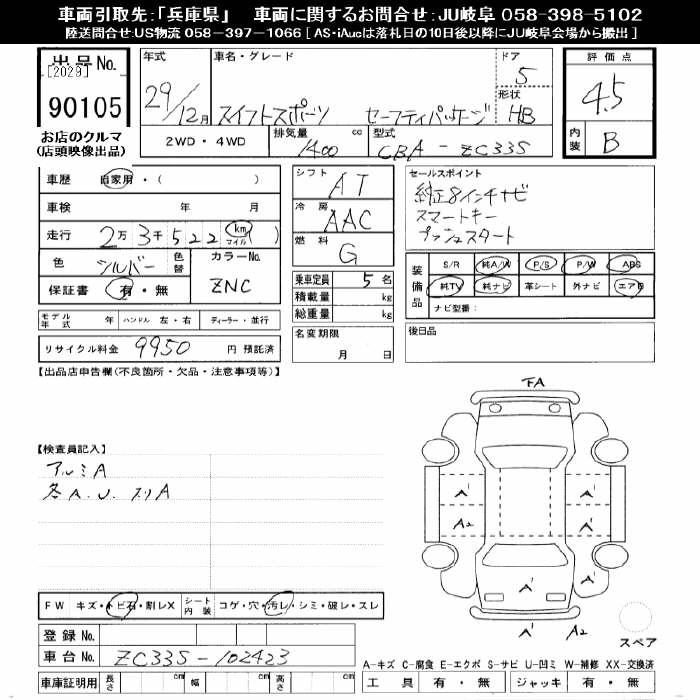 車両引取先:「兵庫県」 車両に関するお問合せ:JU岐阜 058-398-5102
陸送問合せ:US物流 058-397-1066 [ AS・iAucは落札日の10日後以降にJU岐阜会場から搬出 ]
出品No.
[2029]
90105
お店のクルマ
(店頭映像出品)
年式
29/12月
車名・グレード
スイフトスポーツ セーフティパッケージ
ドア
5
形状
HB
2WD・4WD
排気量
1400 cc
型式
CBA-ZC33S
評価点
4.5
内装
B
車歴 自家用・( )
車検 年 月
走行 2万3千522 km マイル )
色 シルバー 色替
カラーNo.
ZNC
保証書 有・無
モデル年式 年 ハンドル 左・右 ディーラー・並行
リサイクル料金 9950 円 預託済
シフト AT
冷房 AAC
燃料 G
乗車定員 5 名
積載量 kg
総重量 kg
名変期限
月 日
セールスポイント
純正8インチナビ
スマートキー
プッシュスタート
装備品
S/R 純A/W P/S P/W ABS
純TV 純ナビ 革シート 外ナビ エアB
ナビ型番:
後日品
【出品店申告欄(不良箇所・欠品・注意事項等)】
【検査員記入】
アルミA
各A.U.スリA
FW キズ・トビ石・割レX
シート内装 コゲ・穴・汚レ・シミ・破レ・スレ
登録No.
車台No. ZC33S-102423
車庫証明用 長さ cm 幅 cm 高さ cm
FA
A'
A'
A2
A'
A'
A'
A2
スペア
A-キズ C-腐食 E-エクボ S-サビ U-凹ミ W-補修 XX-交換済
工具 有・無 ジャッキ 有・無